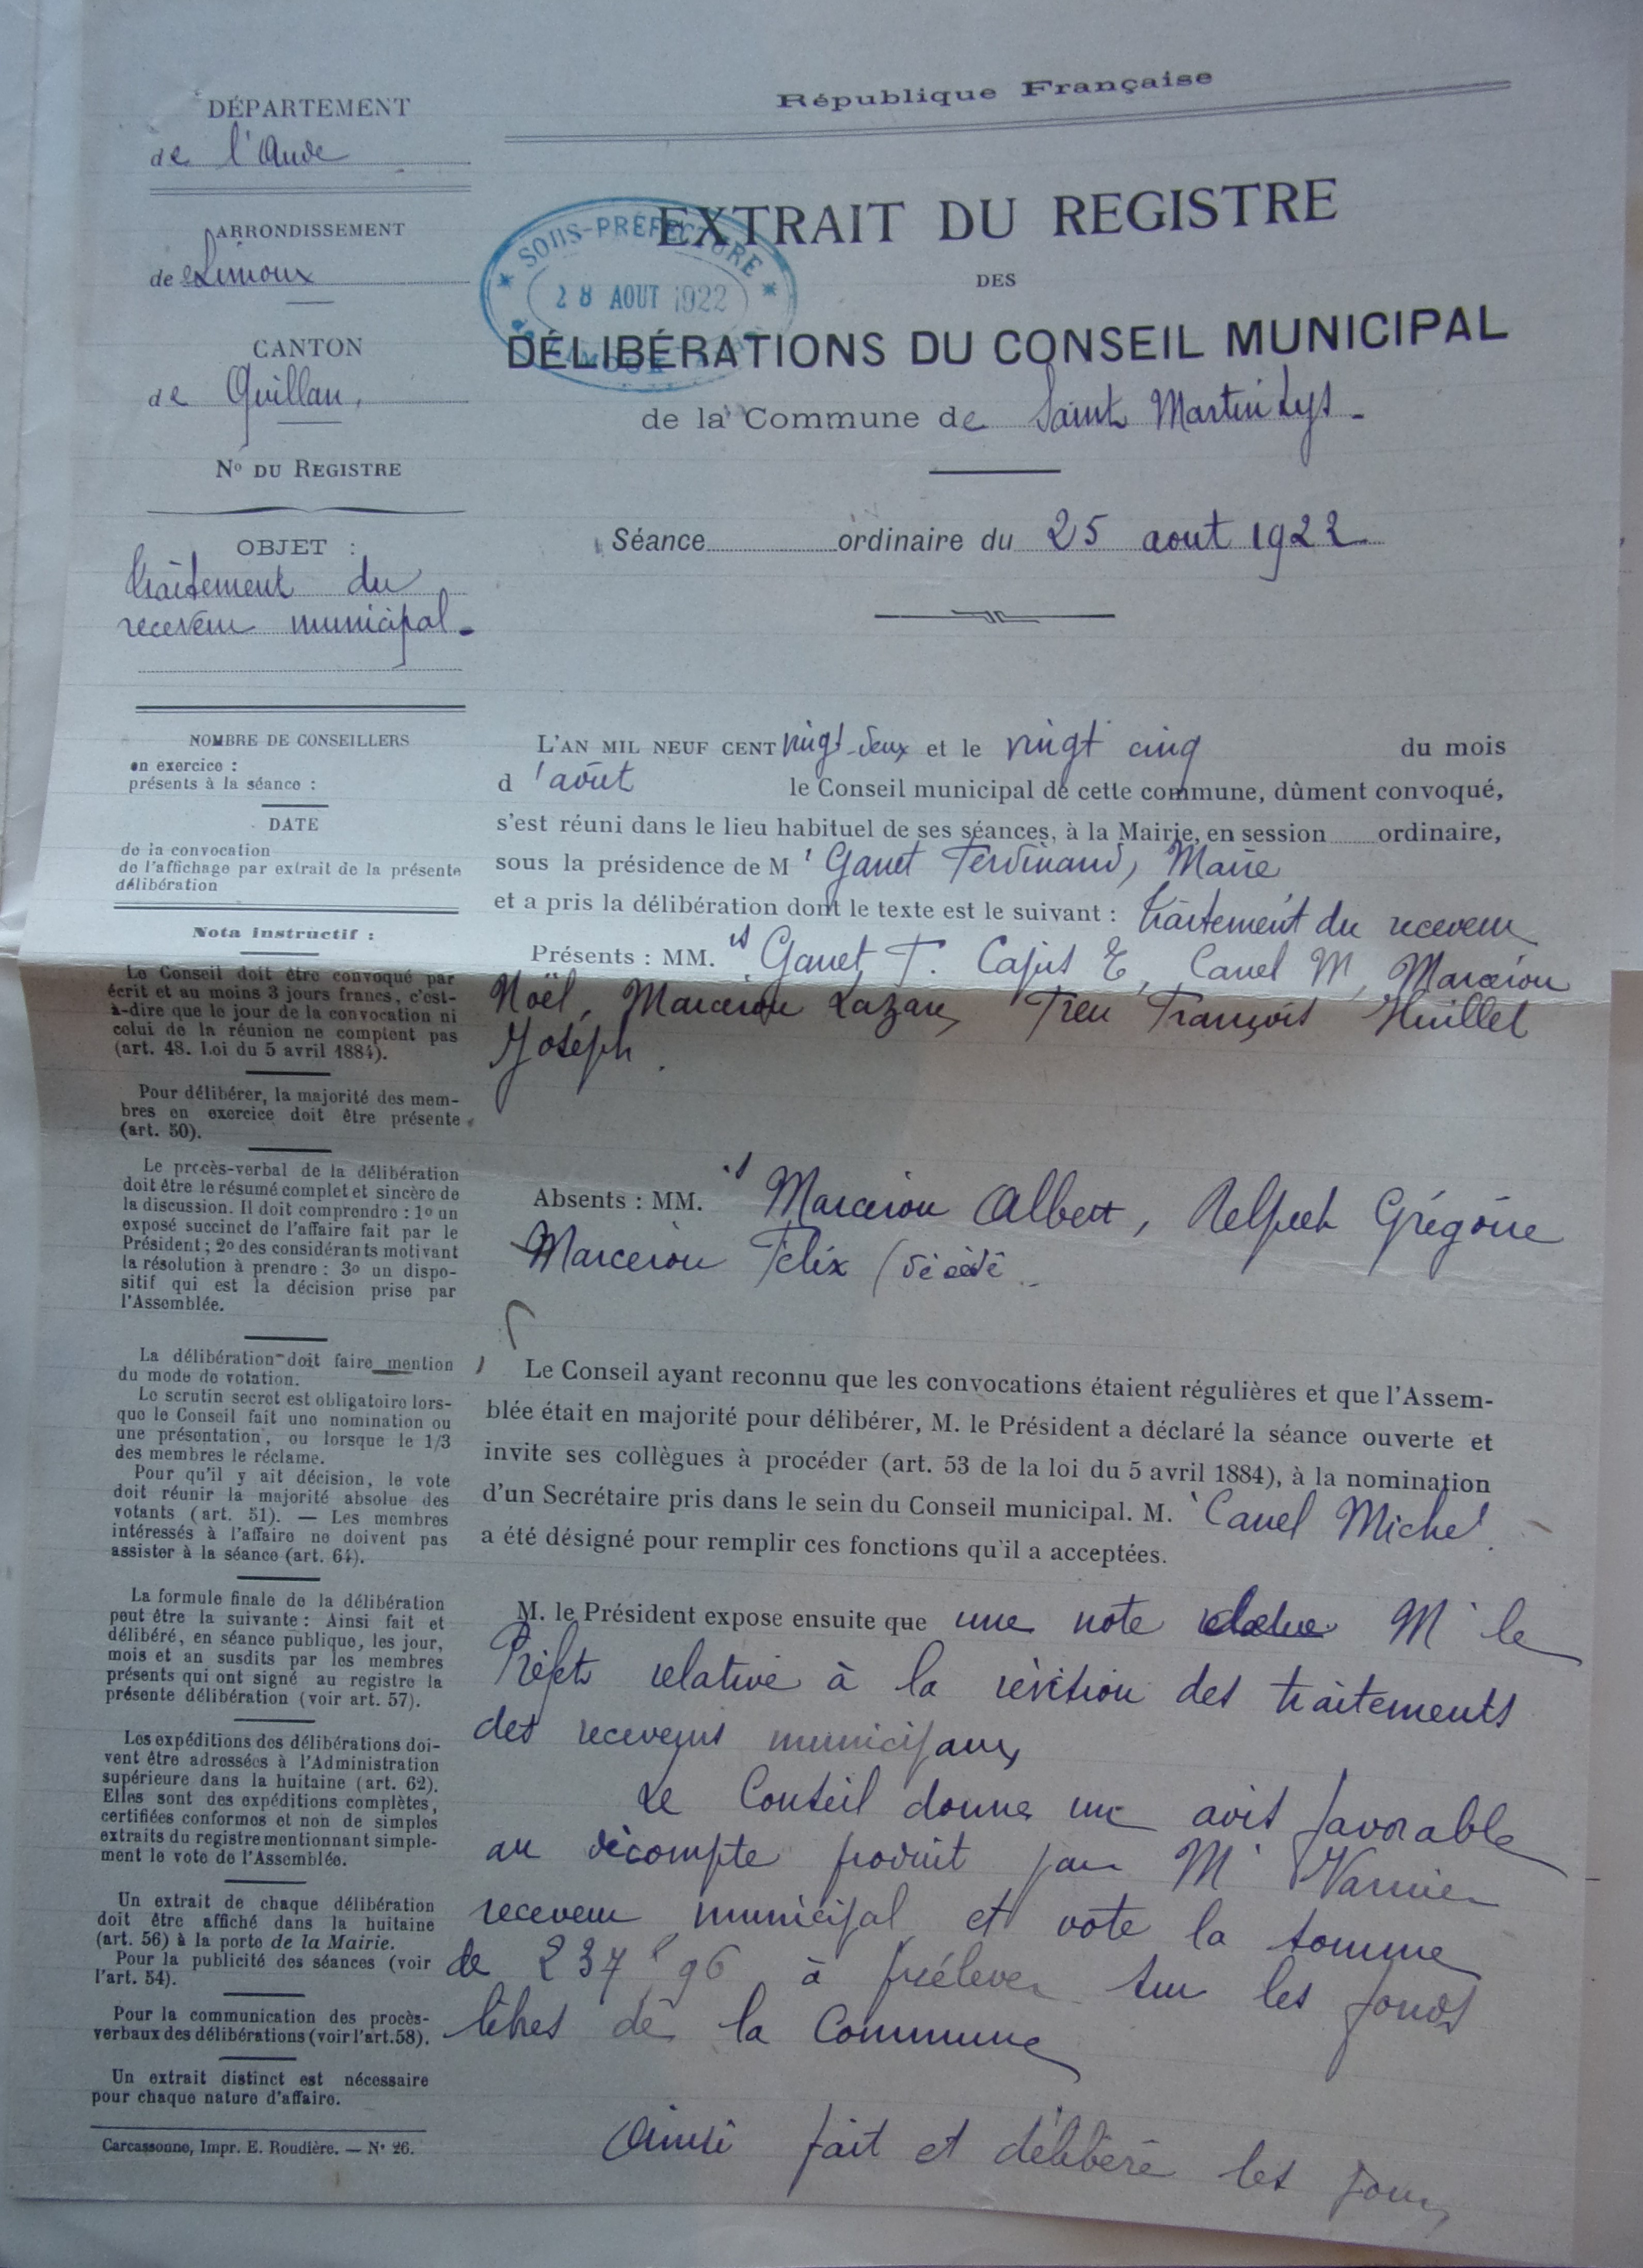 République Française
DÉPARTEMENT
de l'Aude
ARRONDISSEMENT
de Limoux
CANTON
de Quillan,
No DU REGISTRE
OBJET :
traitement du
receveur municipal.
EXTRAIT DU REGISTRE
DES
DÉLIBÉRATIONS DU CONSEIL MUNICIPAL
de la Commune de Saint Martin Lys.
* SOUS-PRÉFECTURE *
28 AOUT 1922
Séance ordinaire du 25 aout 1922
NOMBRE DE CONSEILLERS
en exercice :
présents à la séance :
DATE
de la convocation
de l'affichage par extrait de la présente
délibération
Nota instructif :
Le Conseil doit être convoqué par
écrit et au moins 3 jours francs, c'est-
à-dire que le jour de la convocation ni
celui de la réunion ne comptent pas
(art. 48. Loi du 5 avril 1884).
Pour délibérer, la majorité des mem-
bres en exercice doit être présente
(art. 50).
Le procès-verbal de la délibération
doit être le résumé complet et sincère de
la discussion. Il doit comprendre : 1o un
exposé succinct de l'affaire fait par le
Président ; 2o des considérants motivant
la résolution à prendre : 3o un dispo-
sitif qui est la décision prise par
l'Assemblée.
La délibération doit faire mention
du mode de votation.
Le scrutin secret est obligatoire lors-
que le Conseil fait une nomination ou
une présentation, ou lorsque le 1/3
des membres le réclame.
Pour qu'il y ait décision, le vote
doit réunir la majorité absolue des
votants (art. 51). — Les membres
intéressés à l'affaire ne doivent pas
assister à la séance (art. 64).
La formule finale de la délibération
peut être la suivante : Ainsi fait et
délibéré, en séance publique, les jour,
mois et an susdits par les membres
présents qui ont signé au registre la
présente délibération (voir art. 57).
Les expéditions des délibérations doi-
vent être adressées à l'Administration
supérieure dans la huitaine (art. 62).
Elles sont des expéditions complètes,
certifiées conformes et non de simples
extraits du registre mentionnant simple-
ment le vote de l'Assemblée.
Un extrait de chaque délibération
doit être affiché dans la huitaine
(art. 56) à la porte de la Mairie.
Pour la publicité des séances (voir
l'art. 54).
Pour la communication des procès-
verbaux des délibérations (voir l'art. 58).
Un extrait distinct est nécessaire
pour chaque nature d'affaire.
Carcassonne, Impr. E. Roudière. — No 26.
L'AN MIL NEUF CENT vingt-deux et le vingt cinq du mois
d'août le Conseil municipal de cette commune, dûment convoqué,
s'est réuni dans le lieu habituel de ses séances, à la Mairie, en session ordinaire,
sous la présidence de Mr Ganet Ferdinand, Maire
et a pris la délibération dont le texte est le suivant : traitement du receveur
Présents : MM.rs Ganet F. Cajus E, Canel M, Marcerou
Noël, Marcerou Lazare, François Huillet
Joseph.
Absents : MM.rs Marcerou Albert, Grégoire
Marcerou Félix (décédé
Le Conseil ayant reconnu que les convocations étaient régulières et que l'Assem-
blée était en majorité pour délibérer, M. le Président a déclaré la séance ouverte et
invite ses collègues à procéder (art. 53 de la loi du 5 avril 1884), à la nomination
d'un Secrétaire pris dans le sein du Conseil municipal. M. Canel Michel
a été désigné pour remplir ces fonctions qu'il a acceptées.
M. le Président expose ensuite que une note Mr le
Préfet relative à la révision des traitements
des receveurs municipaux
Le Conseil donne un avis favorable
au décompte produit par Mr
receveur municipal et vote la somme
de 237f 96 à prélever sur les fonds
libres de la Commune
Ainsi fait et délibéré les jour,